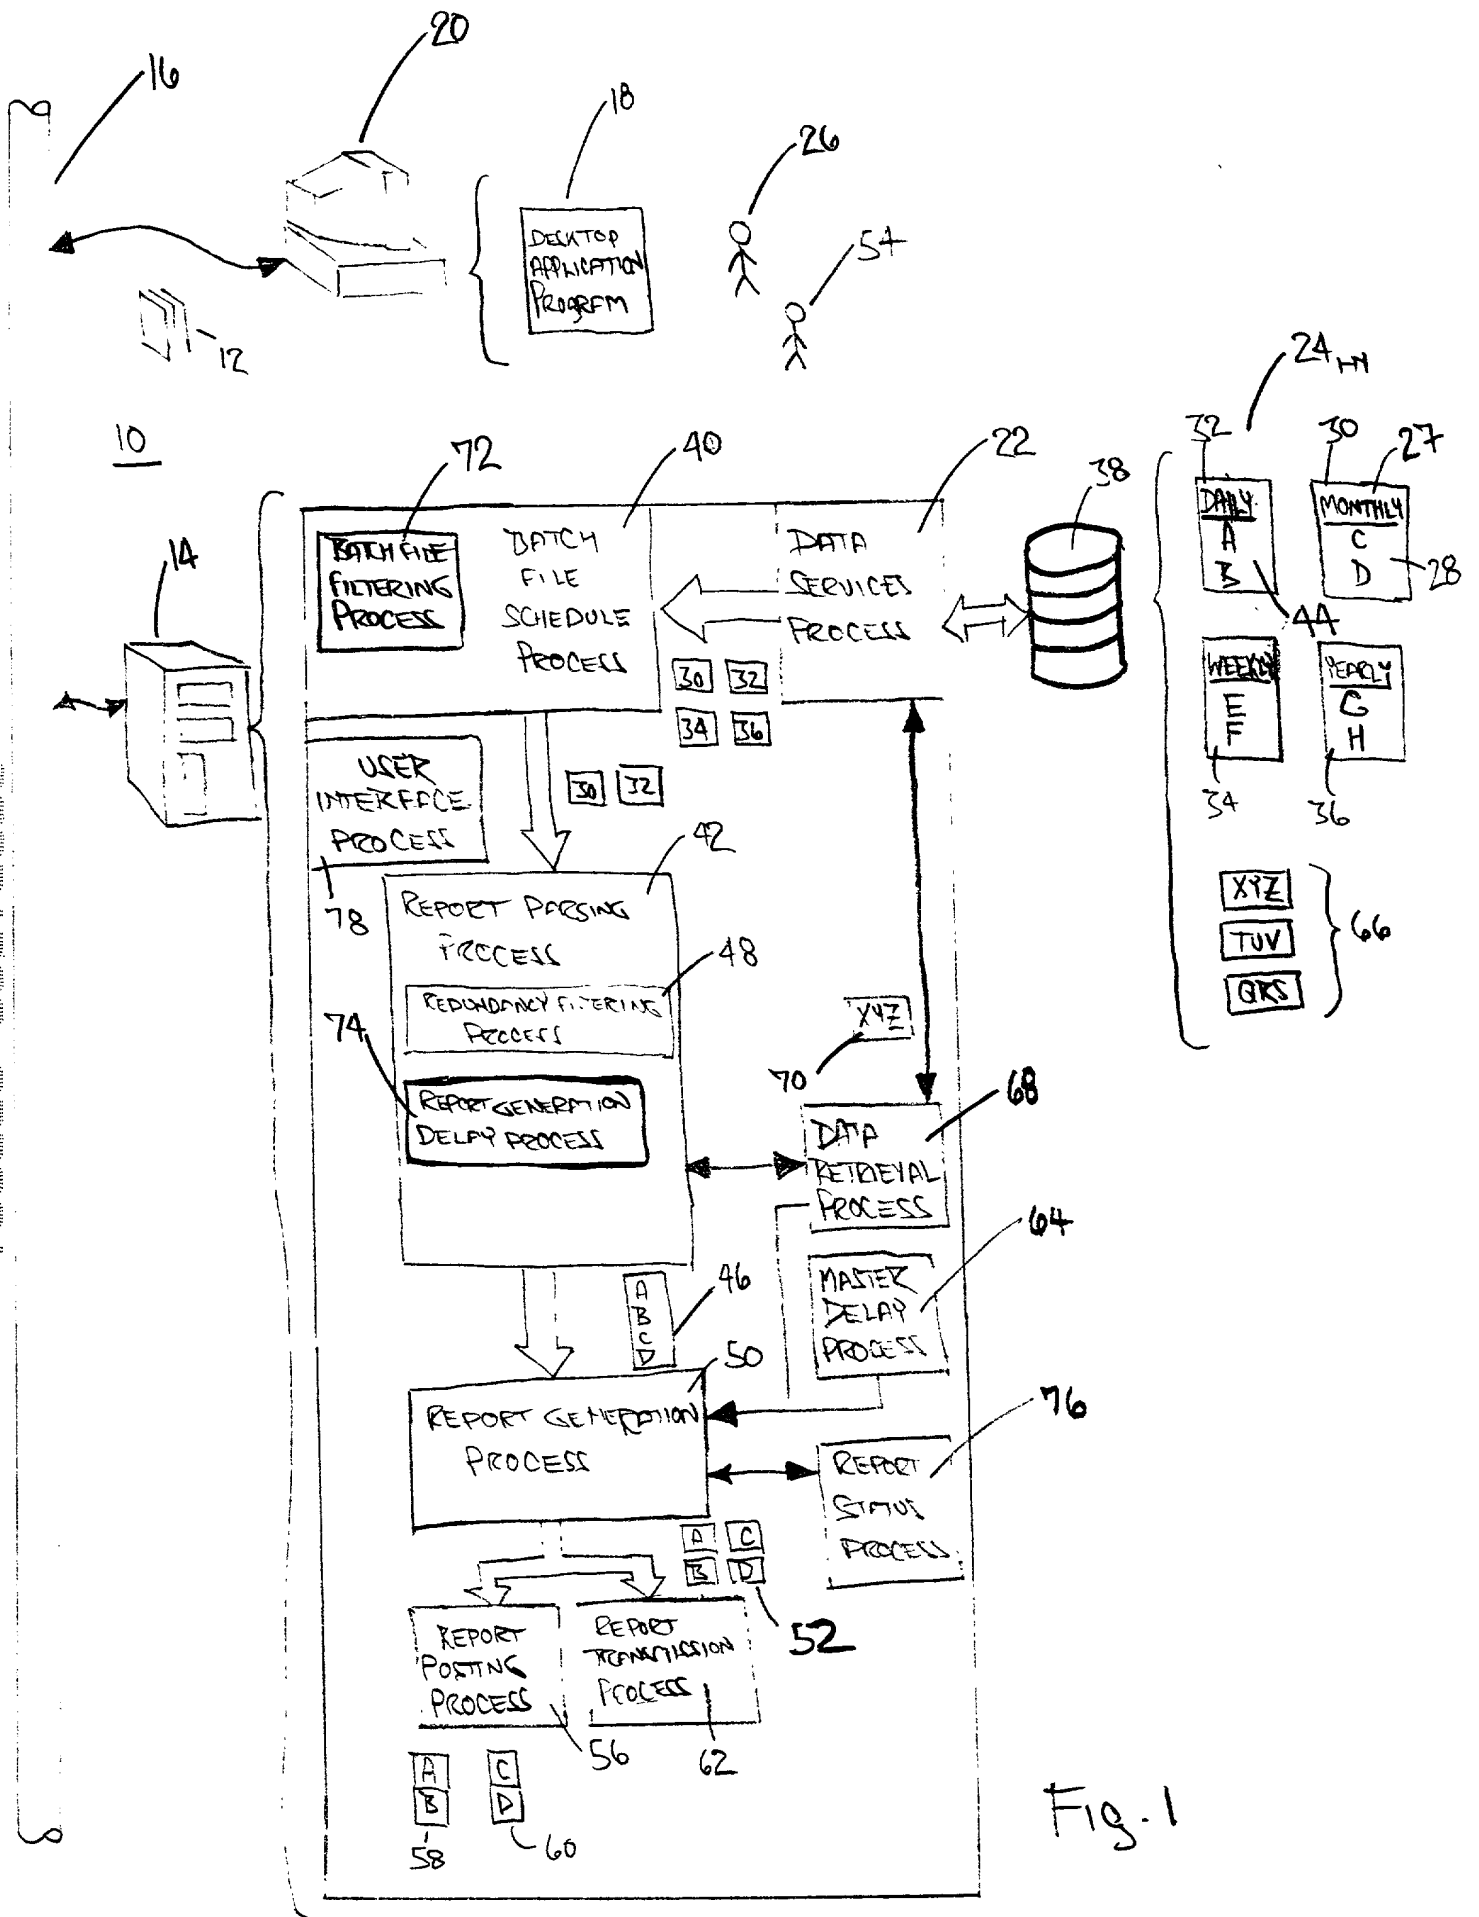 16
20
18
26
54
DESKTOP
APPLICATION
PROGRAM
12
10
72
40
22
38
24
32
30
27
DAILY
A
B
MONTHLY
C
D
28
44
14
BATCH FILE
FILTERING
PROCESS
BATCH
FILE
SCHEDULE
PROCESS
DATA
SERVICES
PROCESS
30 32
34 36
WEEKLY
E
F
YEARLY
G
H
34
36
USER
INTERFACE
PROCESS
78
30 32
42
REPORT PARSING
PROCESS
48
REDUNDANCY FILTERING
PROCESS
74
REPORT GENERATION
DELAY PROCESS
XYZ
TUV
QRS
66
XYZ
70
68
DATA
RETRIEVAL
PROCESS
64
MASTER
DELAY
PROCESS
A
B
C
D
46
50
REPORT GENERATION
PROCESS
76
REPORT
STATUS
PROCESS
A C
B D
52
REPORT
POSTING
PROCESS
56
REPORT
TRANSMISSION
PROCESS
62
A
B
58
C
D
60
Fig. 1